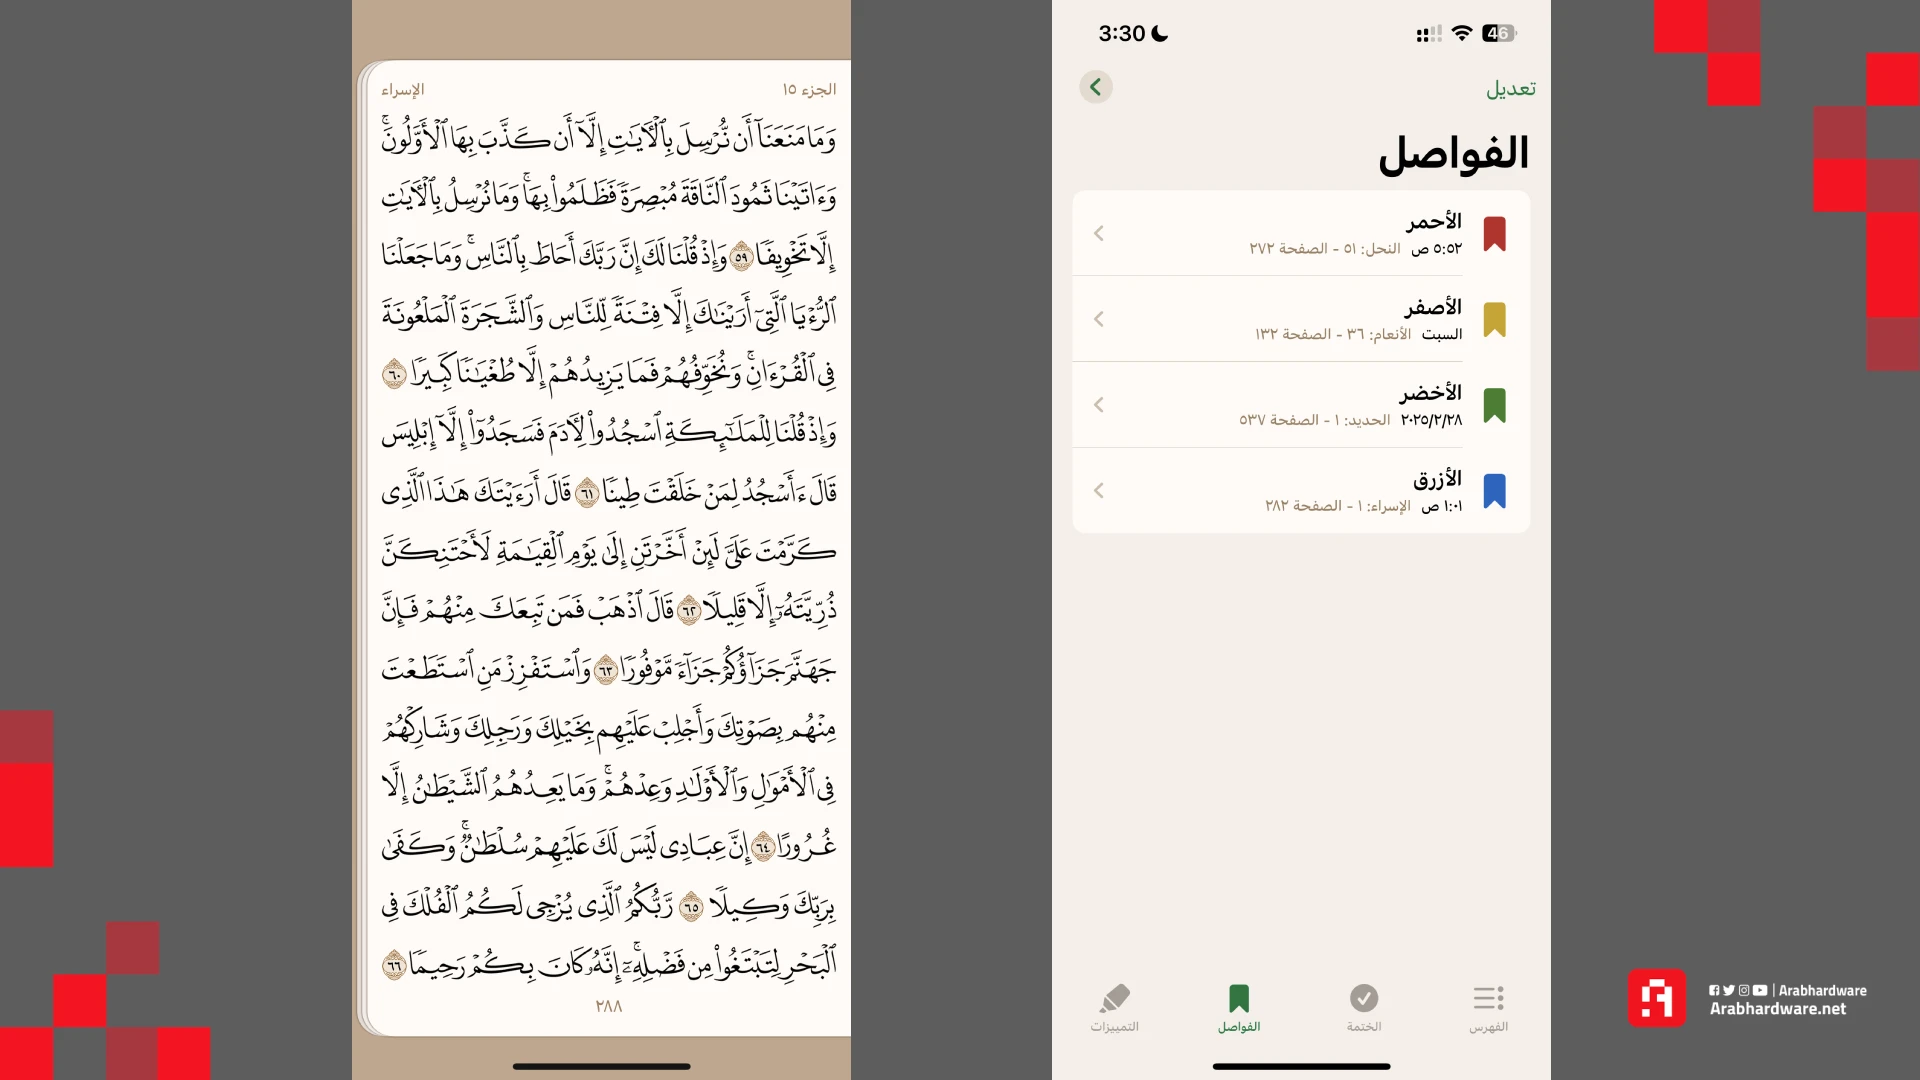 الجزء ١٥
الإسراء
وَمَا مَنَعَنَآ أَن نُّرْسِلَ بِٱلْـَٔايَـٰتِ إِلَّآ أَن كَذَّبَ بِهَا ٱلْأَوَّلُونَ ۚ
وَءَاتَيْنَا ثَمُودَ ٱلنَّاقَةَ مُبْصِرَةً فَظَلَمُوا۟ بِهَا ۚ وَمَا نُرْسِلُ بِٱلْـَٔايَـٰتِ
إِلَّا تَخْوِيفًا ٥٩ وَإِذْ قُلْنَا لَكَ إِنَّ رَبَّكَ أَحَاطَ بِٱلنَّاسِ ۚ وَمَا جَعَلْنَا
ٱلرُّءْيَا ٱلَّتِىٓ أَرَيْنَـٰكَ إِلَّا فِتْنَةً لِّلنَّاسِ وَٱلشَّجَرَةَ ٱلْمَلْعُونَةَ
فِى ٱلْقُرْءَانِ ۚ وَنُخَوِّفُهُمْ فَمَا يَزِيدُهُمْ إِلَّا طُغْيَـٰنًا كَبِيرًا ٦٠
وَإِذْ قُلْنَا لِلْمَلَـٰٓئِكَةِ ٱسْجُدُوا۟ لِـَٔادَمَ فَسَجَدُوٓا۟ إِلَّآ إِبْلِيسَ
قَالَ ءَأَسْجُدُ لِمَنْ خَلَقْتَ طِينًا ٦١ قَالَ أَرَءَيْتَكَ هَـٰذَا ٱلَّذِى
كَرَّمْتَ عَلَىَّ لَئِنْ أَخَّرْتَنِ إِلَىٰ يَوْمِ ٱلْقِيَـٰمَةِ لَأَحْتَنِكَنَّ
ذُرِّيَّتَهُۥٓ إِلَّا قَلِيلًا ٦٢ قَالَ ٱذْهَبْ فَمَن تَبِعَكَ مِنْهُمْ فَإِنَّ
جَهَنَّمَ جَزَآؤُكُمْ جَزَآءً مَّوْفُورًا ٦٣ وَٱسْتَفْزِزْ مَنِ ٱسْتَطَعْتَ
مِنْهُم بِصَوْتِكَ وَأَجْلِبْ عَلَيْهِم بِخَيْلِكَ وَرَجِلِكَ وَشَارِكْهُمْ
فِى ٱلْأَمْوَٰلِ وَٱلْأَوْلَـٰدِ وَعِدْهُمْ ۚ وَمَا يَعِدُهُمُ ٱلشَّيْطَـٰنُ إِلَّا
غُرُورًا ٦٤ إِنَّ عِبَادِى لَيْسَ لَكَ عَلَيْهِمْ سُلْطَـٰنٌ ۚ وَكَفَىٰ
بِرَبِّكَ وَكِيلًا ٦٥ رَّبُّكُمُ ٱلَّذِى يُزْجِى لَكُمُ ٱلْفُلْكَ فِى
ٱلْبَحْرِ لِتَبْتَغُوا۟ مِن فَضْلِهِۦٓ ۚ إِنَّهُۥ كَانَ بِكُمْ رَحِيمًا ٦٦
٢٨٨
3:30
46
تعديل
الفواصل
الأحمر
٥:٥٢ ص النحل: ٥١ - الصفحة ٢٧٢
الأصفر
السبت الأنعام: ٣٦ - الصفحة ١٣٢
الأخضر
٢٠٢٥/٢/٢٨ الحديد: ١ - الصفحة ٥٣٧
الأزرق
١:٠١ ص الإسراء: ١ - الصفحة ٢٨٢
الفهرس
الختمة
الفواصل
التمييزات
| Arabhardware
Arabhardware.net